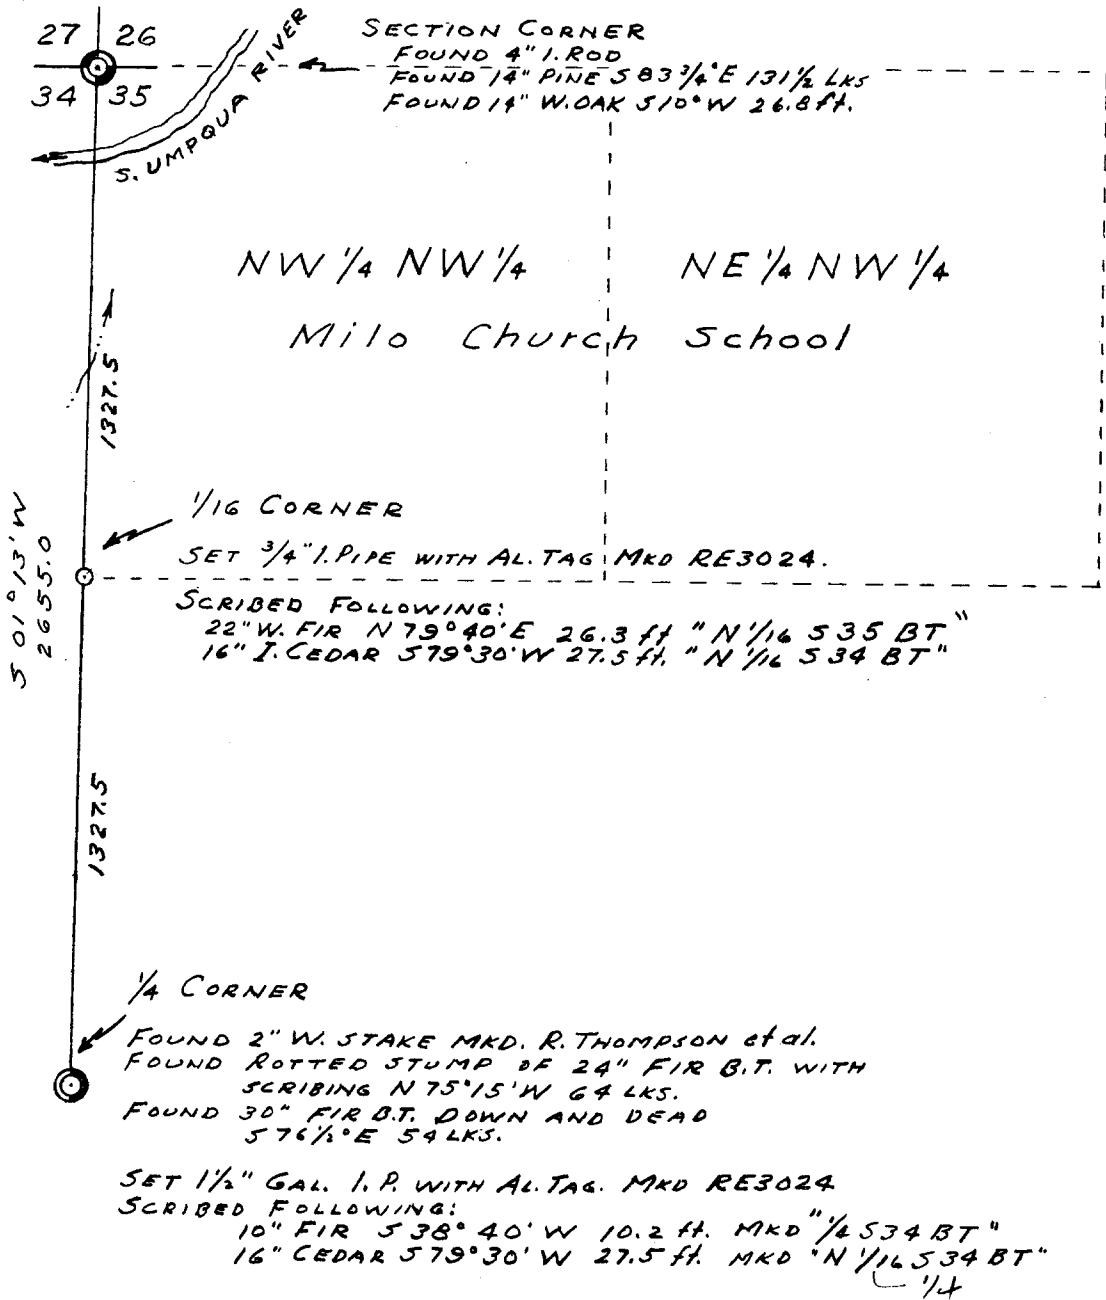 27 26
34 35
S. UMPQUA RIVER
SECTION CORNER
FOUND 4" I. ROD
FOUND 14" PINE S 83 3/4° E 131 1/2 LKS
FOUND 14" W. OAK S 10° W 26.8 ft.
NW 1/4 NW 1/4
NE 1/4 NW 1/4
Milo Church School
1327.5
S 01° 13' W
2655.0
1/16 CORNER
SET 3/4" I. PIPE WITH AL. TAG MKD RE3024.
SCRIBED FOLLOWING:
22" W. FIR N 79° 40' E 26.3 ft "N 1/16 S 35 BT"
16" I. CEDAR S 79° 30' W 27.5 ft. "N 1/16 S 34 BT"
1327.5
1/4 CORNER
FOUND 2" W. STAKE MKD. R. THOMPSON et al.
FOUND ROTTED STUMP OF 24" FIR B.T. WITH
SCRIBING N 75° 15' W 64 LKS.
FOUND 30" FIR B.T. DOWN AND DEAD
S 76 1/2° E 54 LKS.
SET 1 1/2" GAL. I. P. WITH AL. TAG. MKD RE3024
SCRIBED FOLLOWING:
10" FIR S 38° 40' W 10.2 ft. MKD "1/4 S 34 BT"
16" CEDAR S 79° 30' W 27.5 ft. MKD "N 1/16 S 34 BT"
1/4